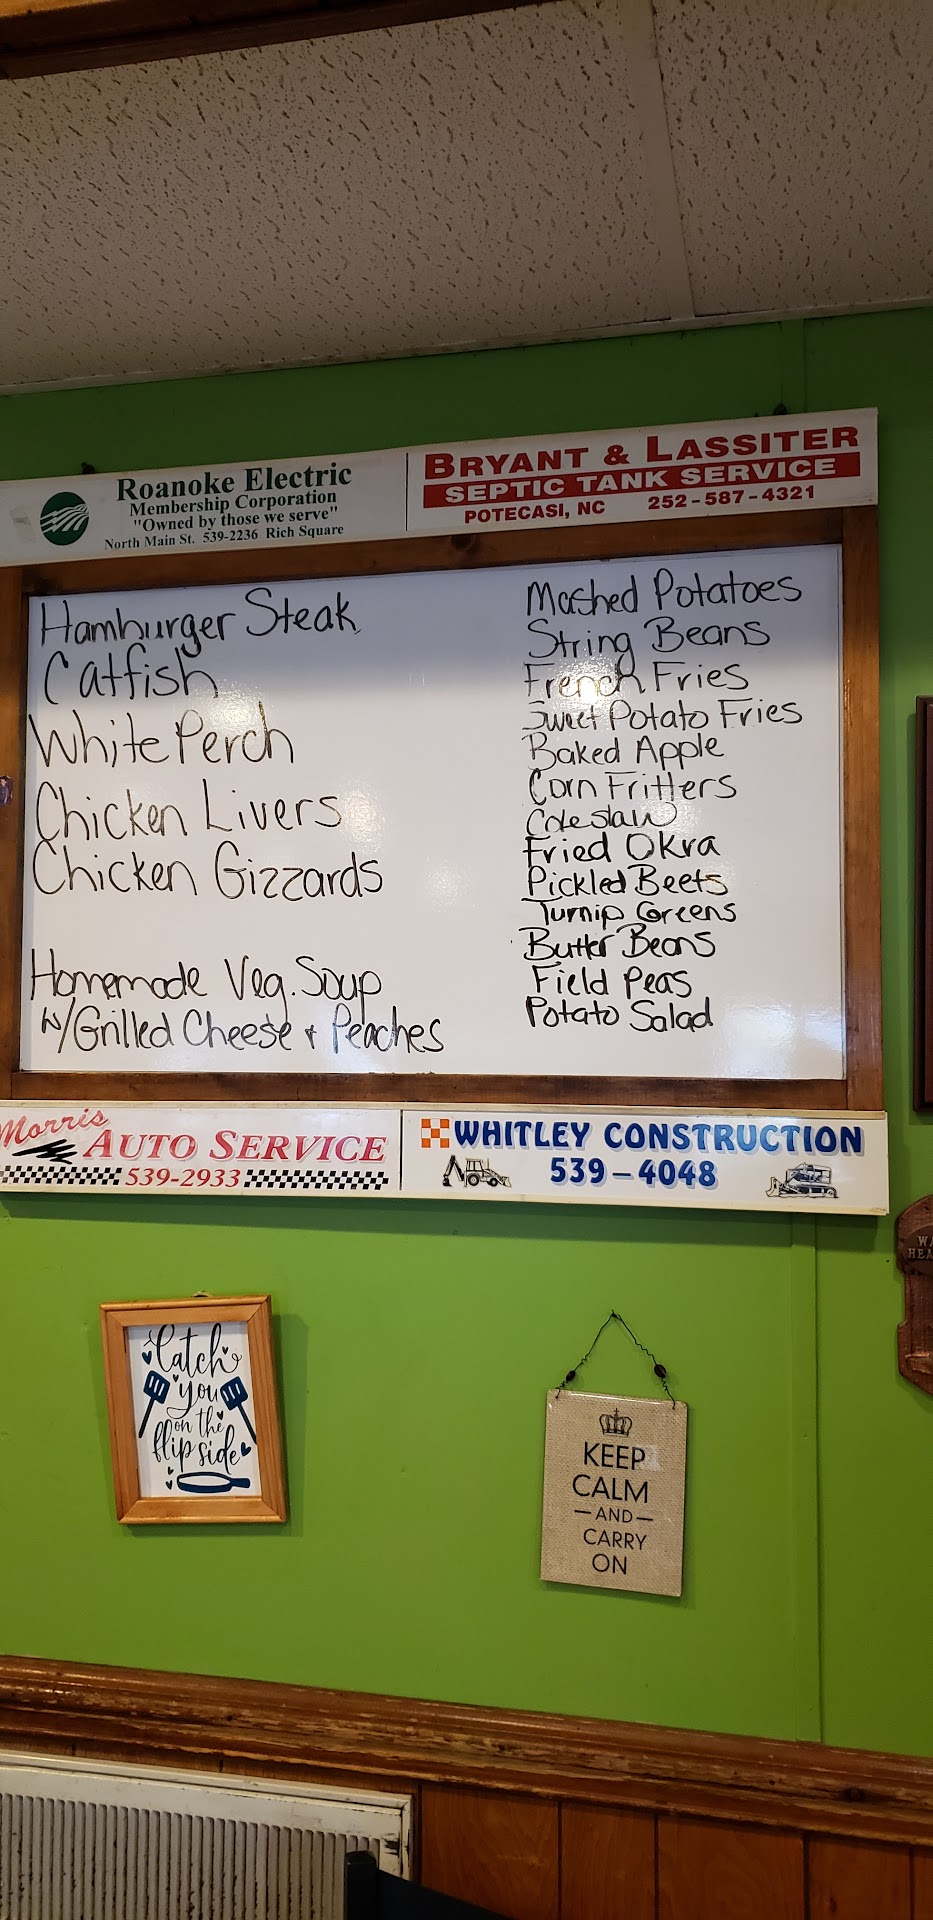 Roanoke Electric
Membership Corporation
"Owned by those we serve"
North Main St. 539-2236 Rich Square
BRYANT & LASSITER
SEPTIC TANK SERVICE
POTECASI, NC 252-587-4321
Hamburger Steak
Catfish
White Perch
Chicken Livers
Chicken Gizzards
Homemade Veg. Soup
w/Grilled Cheese + Peaches
Mashed Potatoes
String Beans
French Fries
Sweet Potato Fries
Baked Apple
Corn Fritters
Coleslaw
Fried Okra
Pickled Beets
Turnip Greens
Butter Beans
Field Peas
Potato Salad
Morris
AUTO SERVICE
539-2933
WHITLEY CONSTRUCTION
539-4048
Catch
you
on the
flip side
KEEP
CALM
—AND—
CARRY
ON